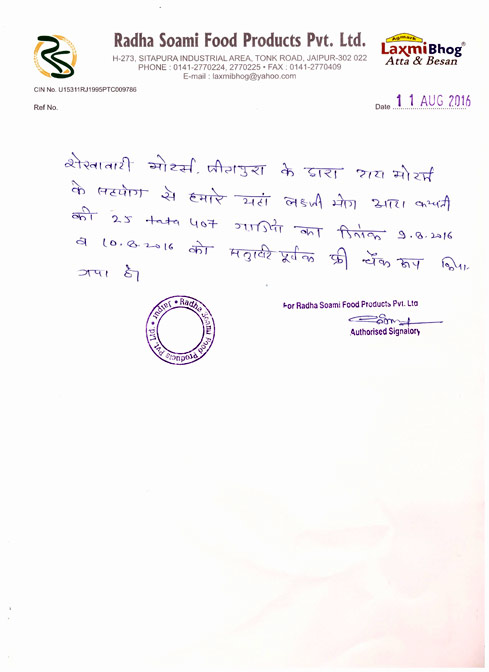 RS
Radha Soami Food Products Pvt. Ltd.
H-273, SITAPURA INDUSTRIAL AREA, TONK ROAD, JAIPUR-302 022
PHONE : 0141-2770224, 2770225 • FAX : 0141-2770409
E-mail : laxmibhog@yahoo.com
Agmark
LaxmiBhog®
Atta & Besan
CIN No. U15311RJ1995PTC009786
Ref No.
Date 11 AUG 2016
शेखावाटी मोटर्स, के द्वारा मोटर्स
के सहयोग से हमारे यहां लक्ष्मी भोग आटा कम्पनी
की 25 tata 407 गाडियो का दिनांक 9.8.2016
व 10.8.2016 को पूर्वक फ्री चैक अप किया
गया है।
For Radha Soami Food Products Pvt. Ltd
Authorised Signatory
Radha Soami Food Products Pvt. Ltd. • Jaipur •